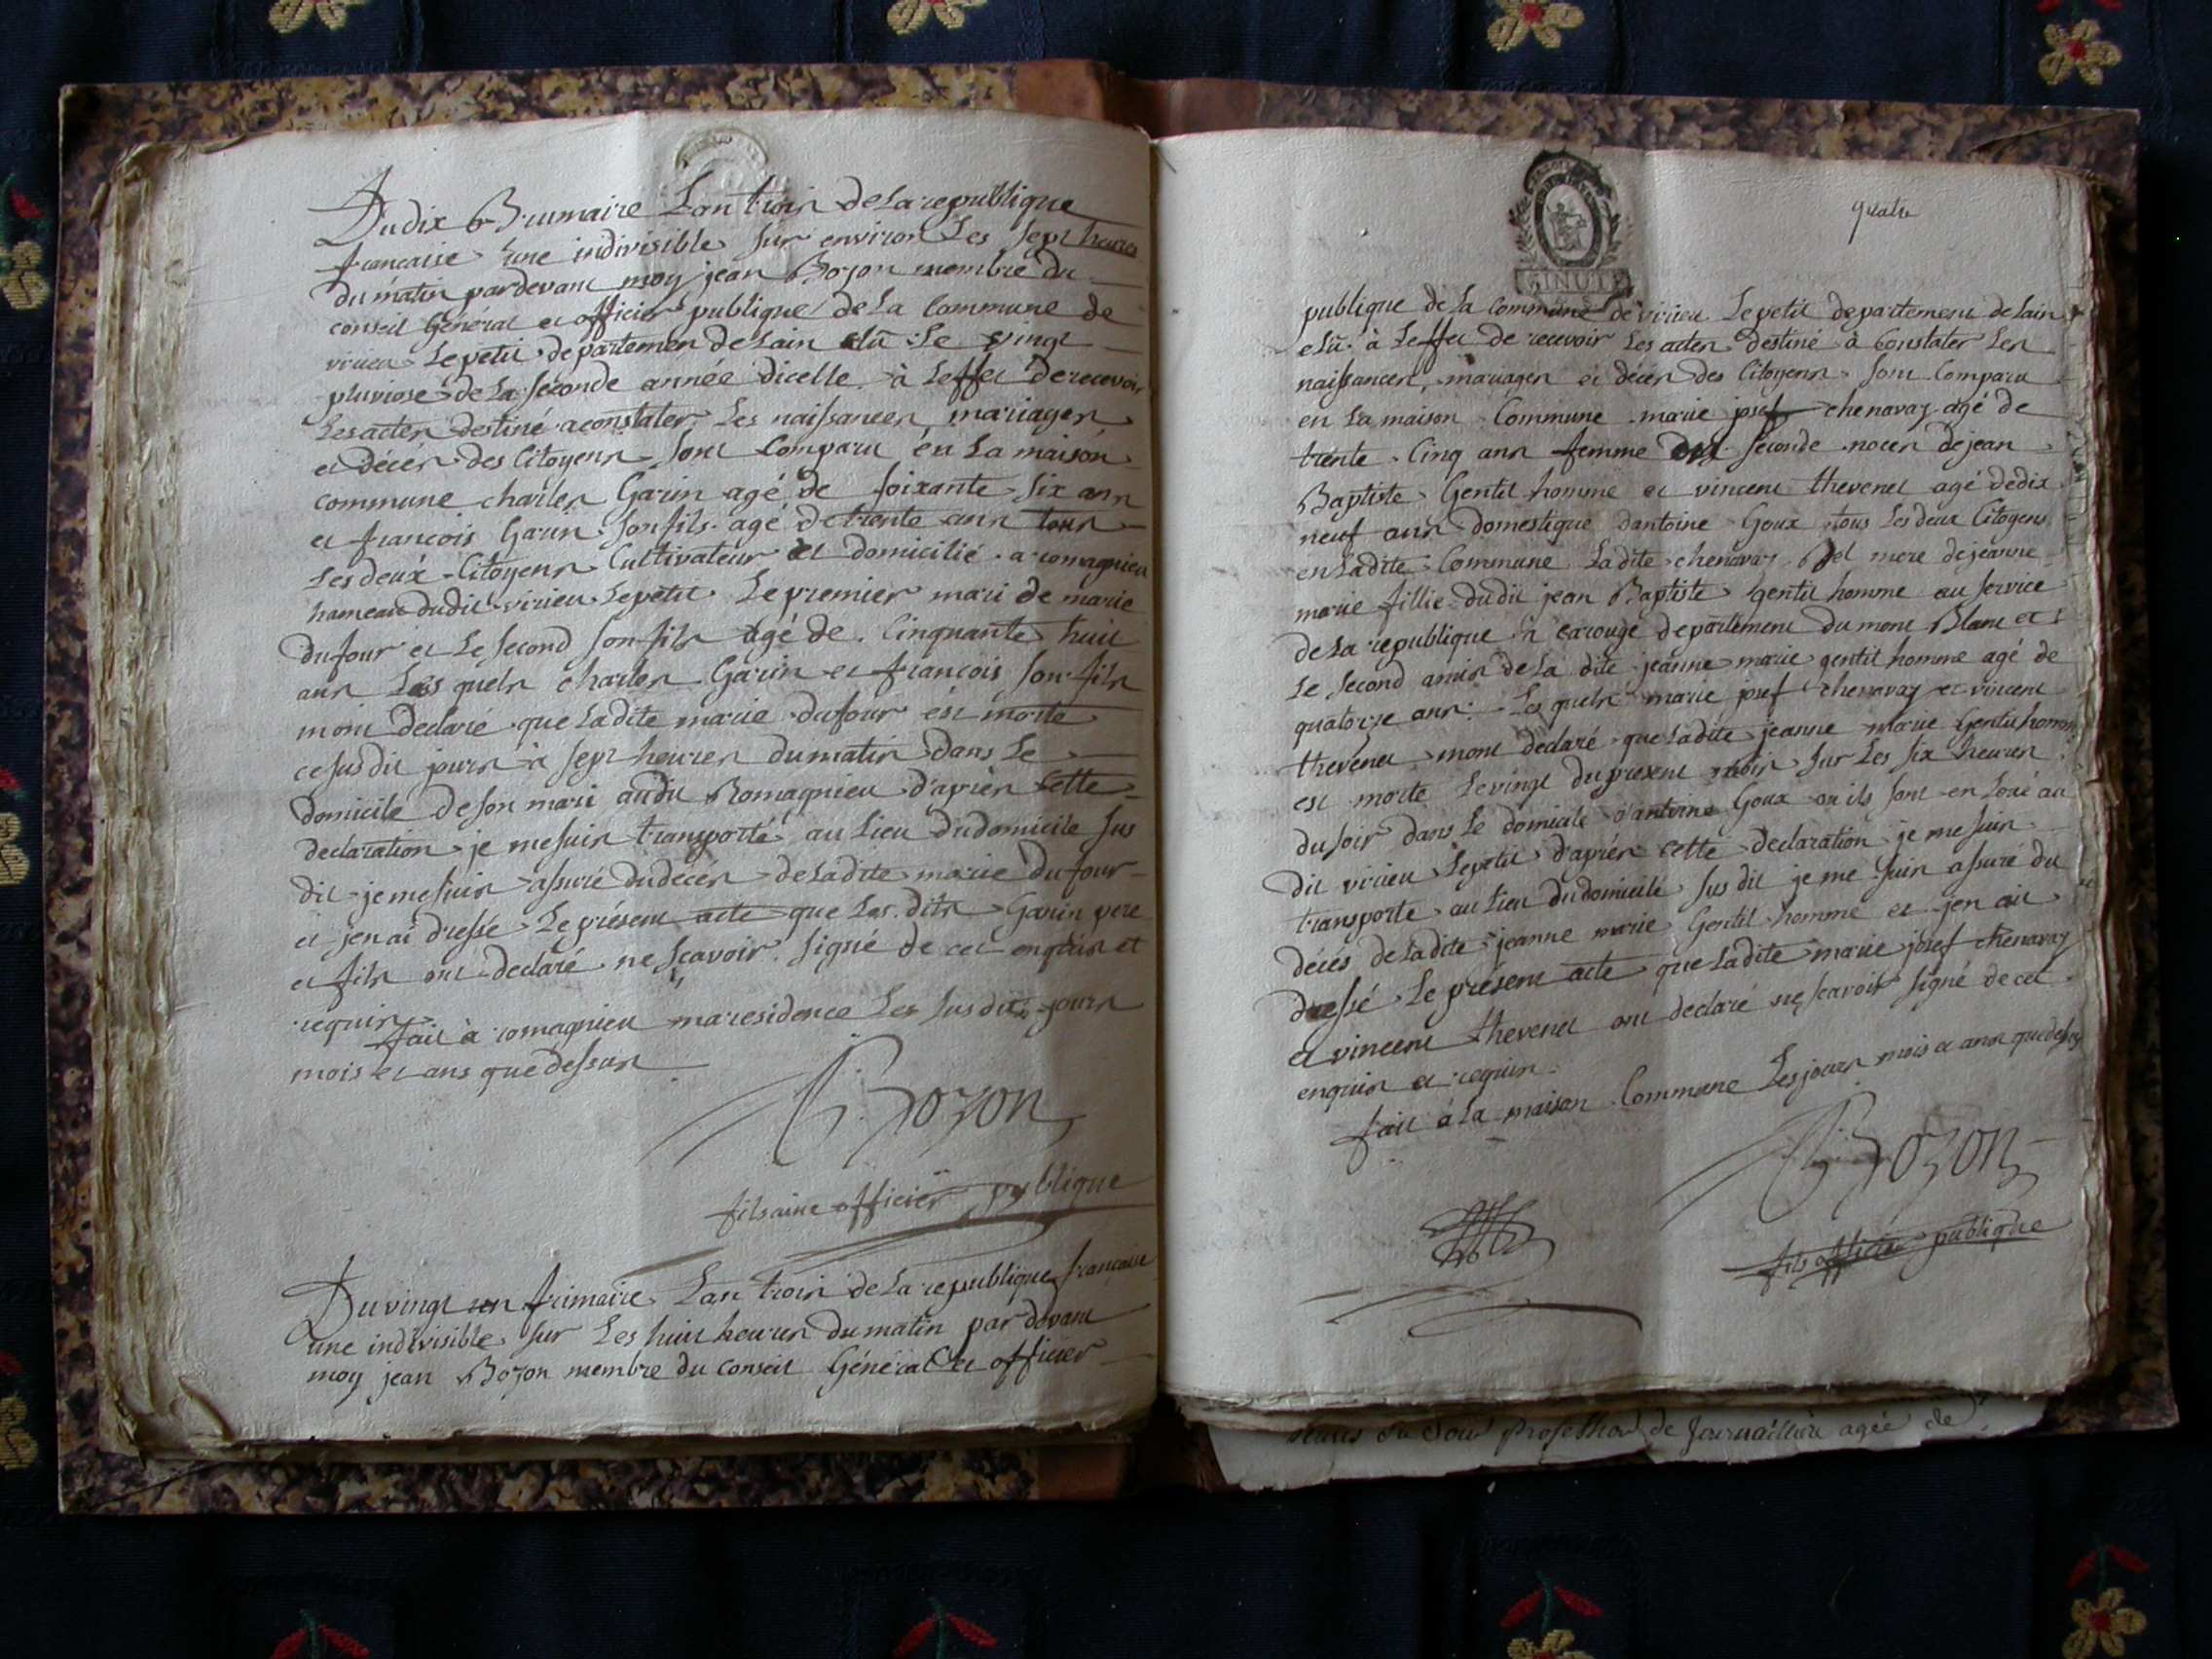 Du dix Brumaire Lan trois de La republique
francaise une indivisible sur environ Les sept heures
du matin pardevant moy jean Bozon membre du
conseil Général et officier publique de La Commune de
virieu Lepetit departemen de Lain elû Le vingt
pluviose de La seconde année dicelle à Leffet derecevoir
Les actes destiné a constater Les naissances, mariages
et décès des Citoyens sont Comparu en La maison
commune charles Garin agé de soixante six ans
et francois Garin son fils agé de trente ans tous
Les deux Citoyens Cultivateur et domicilié a romagnieu
hameau dudit virieu Lepetit Le premier mari de marie
dufour et Le second son fils agé de Cinquante huit
ans Les quels charles Garin et francois son fils
mont declaré que Ladite marie dufour est morte
ce susdit jours à sept heures du matin dans Le
domicile de son mari audit Romagnieu d'après cette
declaration je me suis transporté au Lieu du domicile sus
dit je me suis assuré du décès de Ladite marie dufour
et jen ai dressé Le présent acte que Les dits Garin pere
et fils ont declaré ne scavoir signé de cet enquis et
requis
fait à romagnieu ma residence Les susdits jours
mois et ans que dessus
Bozon
fils aine officier publique
Du vingt un frimaire Lan trois de La republique francaise
une indivisible sur Les huit heures du matin par devant
moy jean Bozon membre du conseil Général et officier
quatre
MINUTE
publique de La Commune de virieu Lepetit departement de Lain
elû à Leffet de recevoir Les actes destiné à Constater Les
naissances, mariages et décès des Citoyens sont Comparu
en La maison Commune marie josef chenavaz agé de
trente Cinq ans femme seconde noces de jean
Baptiste Gentil homme et vincent thevenet agé de dix
neuf ans domestique dantoine Goux tous Les deux Citoyens
en Ladite Commune Ladite chenavaz mere de jeanne
marie fillie dudit jean Baptiste gentil homme au service
de La republique à carouge departement du mont Blanc et
Le second amis de La dite jeanne marie gentil homme agé de
quatorze ans Les quels marie josef chenavaz et vincent
thevenet mont declaré que Ladite jeanne marie Gentil homme
est morte Le vingt du present mois sur Les six heures
du soir dans Le domicile d'antoine Goux ou ils sont en Loué au
dit virieu Lepetit d'après cette declaration je me suis
transporte au Lieu du domicile sus dit je me suis assuré du
décés de Ladite jeanne marie Gentil homme et jen ai
dressé Le présent acte que Ladite marie josef chenavaz
et vincent thevenet ont declaré ne scavoir signé de cet
enquis et requis
fait à La maison Commune Les jours mois et ans que dessus
Bozon
fils officier publique
du soir profession de journalliere agée de